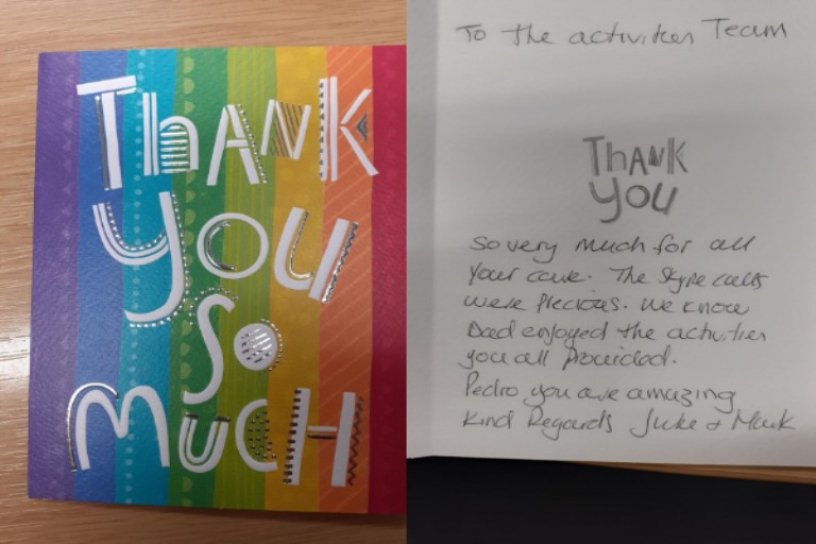 Thank
you
so
much
To the activities Team
Thank
you
So very much for all
your care. The Skype calls
were precious. We know
Dad enjoyed the activities
you all provided.
Pedro you are amazing
Kind Regards & Mark